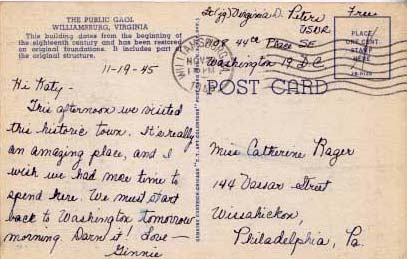 THE PUBLIC GAOL
WILLIAMSBURG, VIRGINIA
This building dates from the beginning of
the eighteenth century and has been restored
on original foundations. It includes part of
the original structure.
11-19-45
Hi Katy-
This afternoon we visited
this historic town. It's really
an amazing place, and I
wish we had more time to
spend here. We must start
back to Washington tomorrow
morning. Darn it! Love-
Ginnie
Virginia D. Peters
USNR
44th Place SE
Washington 19 D.C.
Free
WILLIAMSBURG
NOV
PLACE
ONE CENT
STAMP
HERE
POST CARD
Miss Catherine Rager
144 Vassar Street
Wissahickon,
Philadelphia, Pa.